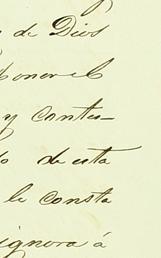 de Dios
poner el
y contes-
de esta
le consta
ignora á